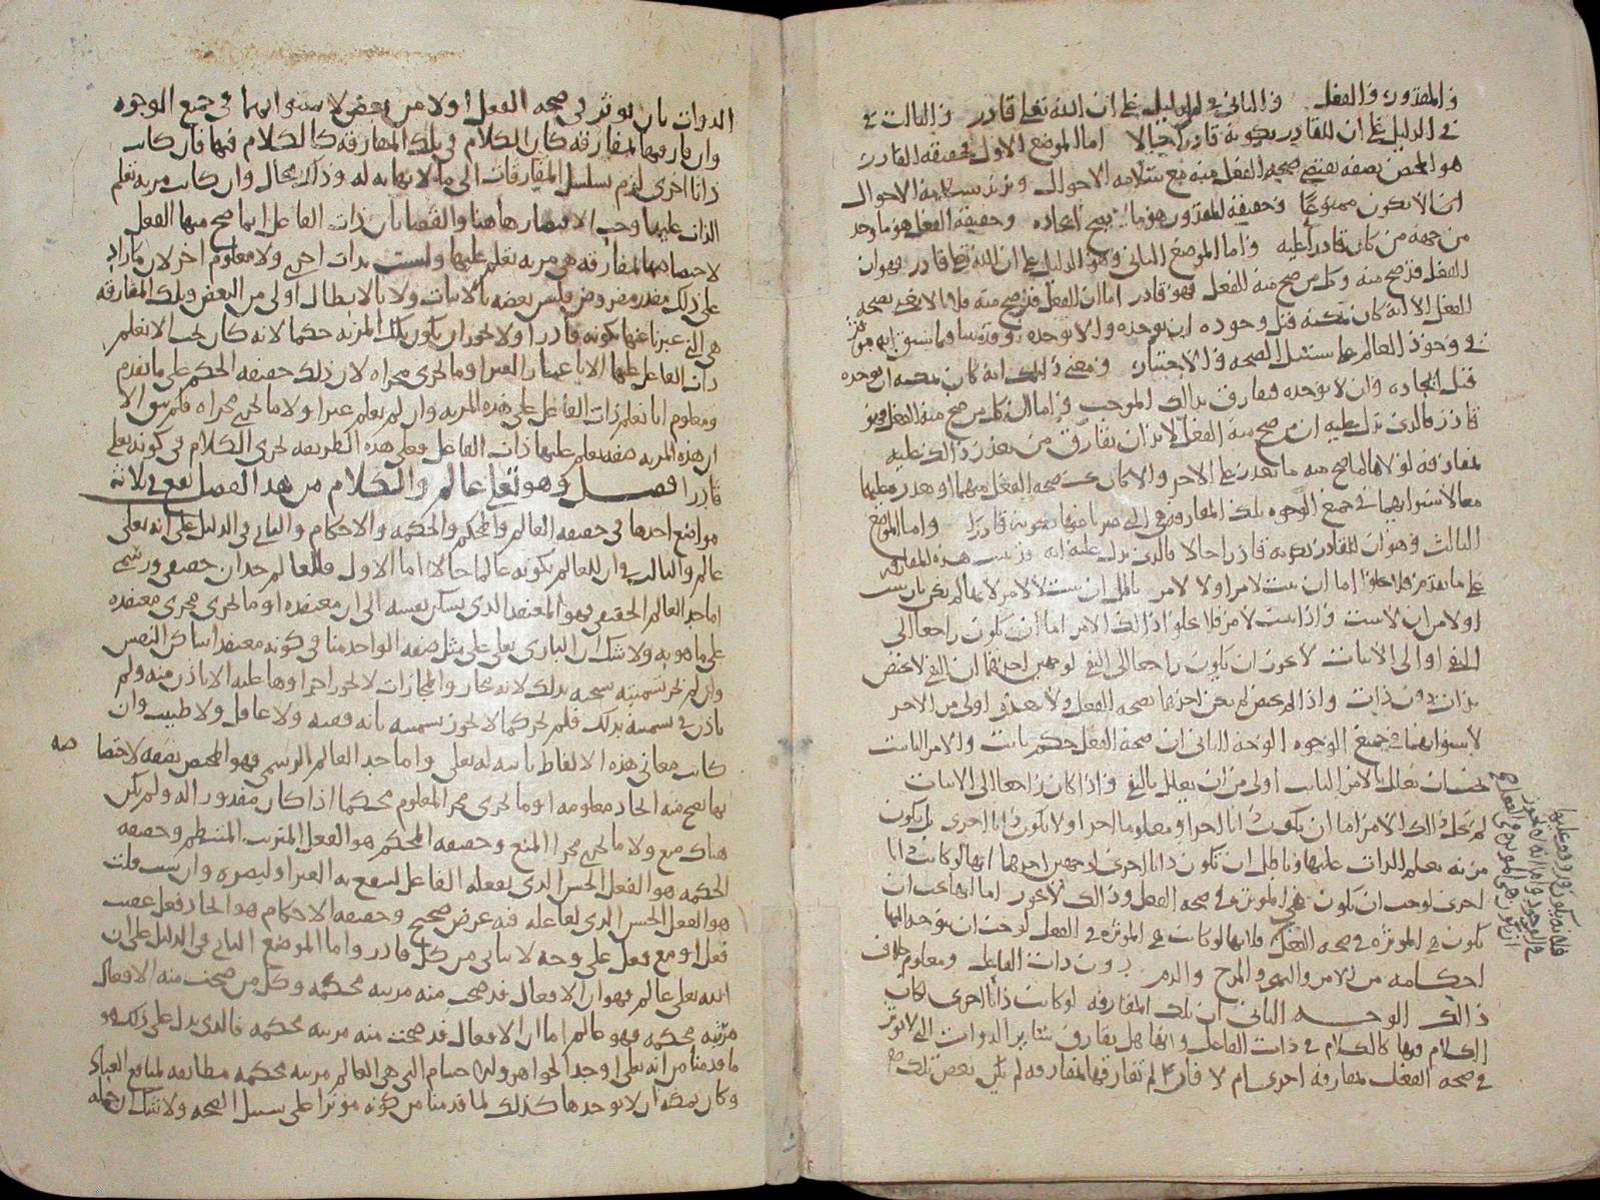 والمقدور والفعل والثاني في الدليل على ان الله تعلى قادر والثالث في
في الدليل على ان للقادر بكونه قادرا حالا اما الموضع الاول فحقيقة القادر
هو المختص بصفة تقتضي صحة الفعل منه مع سلامة الاحوال ونريد بسلامة الاحوال
ان لا يكون ممنوعا وحقيقة المقدور هو ما يصح ايجاده وحقيقة الفعل هو ما وجد
من جهة من كان قادرا عليه واما الموضع الثاني وهو الدليل على ان الله تعلى قادر فهو ان
الفعل قد صح منه وكل من صح منه الفعل فهو قادر اما ان الفعل قد صح منه فلانا لا نعني بصحة
الفعل الا انه كان يمكنه قبل وجوده ان يوجده وان لا يوجده وقد بينا فيما سبق انه موثر
في وجود العالم على سبيل الصحة والاختيار ومعنى ذلك انه كان يمكنه ان يوجده
قبل ايجاده وان لا يوجده وفارق بذلك الموجب واما ان كل من صح منه الفعل فهو
قادر فالذي يدل عليه ان من صح منه الفعل لا بد ان يفارق من تعذر ذلك عليه
بمفارقة لولاها لما صح منه ما تعذر على الاخر والا كان يجب صحة الفعل منهما او تعذره عليهما
معا لاستوايهما في جميع الوجوه تلك المفارقة هي التي عبرنا عنها بكونه قادرا واما الموضع
الثالث وهو ان للقادر بكونه قادرا حالا فالذي يدل عليه انه قد ثبت هذه المفارقة
على ما تقدم فلا يخلوا اما ان يثبت لامر او لا لامر باطل ان يثبت لا لامر لانها لم تكن بان تثبت
اولا من ان لا تثبت واذا ثبت لامر فلا يخلوا ذلك الامر اما ان يكون راجعا الى
النفي او الى الاثبات لا يجوز ان يكون راجعا الى النفي لوجهين احدهما ان النفي لا يختص
بذات دون ذات واذا لم يختص لم يكن احدهما بصحة الفعل ولا بعذره اولى من الاخر
لاستوايهما في جميع الوجوه الوجه الثاني ان صحة الفعل حكم ثابت والامر الثابت
يجب ان يعلل بالامر الثابت اولى من ان يعلل بالنفي واذا كان راجعا الى الاثبات
لم يخل ذلك الامر اما ان يكون ذاتا اخرى او معلوما اخر او لا يكون ذاتا اخرى بل يكون
مزية تعلم الذات عليها وباطل ان تكون ذاتا اخرى لوجهين احدهما انها لو كانت ذاتا
اخرى لوجب ان تكون هي الموثرة في صحة الفعل وذلك لا يجوز اما انها يجب ان
تكون هي الموثرة في صحة الفعل فلانها لو كانت هي الموثرة في الفعل لوجب ان يوجه اليها
احكامه من الامر والنهي والمدح والذم دون ذات الفاعل ومعلوم خلاف
ذلك الوجه الثاني ان تلك المفارقة لو كانت ذاتا اخرى لكان
الكلام فيها كالكلام في ذات الفاعل وانها هل تفارق ساير الذوات التي لا توثر
في صحة الفعل بمفارقة اخرى ام لا فان لم تفارقها بمفارقة لم تكن بعض تلك
الذوات بان توثر في صحة الفعل اولا من بعض لاستوايهما في جميع الوجوه
وان فارقتها بمفارقة كان الكلام في تلك المفارقة كالكلام فيها فان كانت
ذاتا اخرى لزم تسلسل المفارقات الى ما لا نهاية له وذلك محال وان كانت مزية تعلم
الذات عليها وجب الاقتصار هاهنا والقضا بان ذات الفاعل انما صح منها الفعل
لاختصاصها بمفارقة هي مزية تعلم عليها وليست بذات اخرى ولا معلوم اخر لان ما زاد
على ذلك مقدر مفروض فليس بعضه بالاثبات ولا بالابطال اولى من البعض وتلك المفارقة
هي التي عبرنا عنها بكونه قادرا ولا يجوز ان يكون تلك المزية حكما لانه كان يجب الا تعلم
ذات الفاعل عليها الا باعتبار الغير او ما يجري مجراه لان ذلك حقيقة الحكم على ما تقدم
ومعلوم انا نعلم ذات الفاعل على هذه المزية وان لم نعلم غيرا ولا ما يجري مجراه فلم يبق الا
ان هذه المزية صفة يعلم عليها ذات الفاعل وعلى هذه الطريقة يجري الكلام في كونه تعلى
قادرا فصل وهو تعلى عالم والكلام من هذا الفصل يقع في ثلاثة
مواضع احدها في حقيقة العالم والمحكم والحكمة والاحكام والثاني في الدليل على انه تعلى
عالم والثالث في ان للعالم بكونه عالما حالا اما الاول فللعالم حدان حقيقي ورسمي
اما حد العالم الحقيقي فهو المعتقد الذي تسكن نفسه الى ان معتقده او ما يجري مجرى معتقده
على ما هو به ولا شك ان الباري تعلى على مثل صفة الواحد منا في كونه معتقدا ساكن النفس
وان لم تجر تسميته سحيه بذلك لانه مجاز والمجازات لا يجوز اجراوها عليه الا باذن منه ولم
ياذن في تسميته بذلك فلم يجز كما لا يجوز تسميته بانه فقيه ولا عاقل ولا طبيب وان
كانت معاني هذه الالفاظ ثابتة له تعلى واما حد العالم الرسمي فهو المختص بصفة لاختصا صه
بها يصح منه ايجاد معلومه او ما يجري مجرا المعلوم محكما اذا كان مقدورا له ولم يكن
هناك منع ولا ما يجري مجرا المنع وحقيقة المحكم هو الفعل المترتب المنتظم وحقيقة
الحكمة هو الفعل الحسن الذي يفعله الفاعل لينفع به الغير او ليضره وان شئت قلت
هو الفعل الحسن الذي لفاعله فيه غرض صحيح وحقيقة الاحكام هو ايجاد فعل عقيب
فعل او مع فعل على وجه لا يتاتى من كل قادر واما الموضع الثاني في الدليل على ان
الله تعلى عالم فهو ان الافعال قد صحت منه مرتبة محكمة وكل من صحت منه الافعال
مرتبة محكمة فهو عالم اما ان الافعال قد صحت منه مرتبة محكمة فالذي يدل على ذلك هو
ما قدمنا من انه تعلى اوجد الجواهر والاجسام التي هي العالم مرتبة محكمة مطابقة لمنافع العباد
وكان يمكنه ان لا يوجدها كذلك لما قدمنا من كونه موثرا على سبيل الصحة ولا شك ان جملة